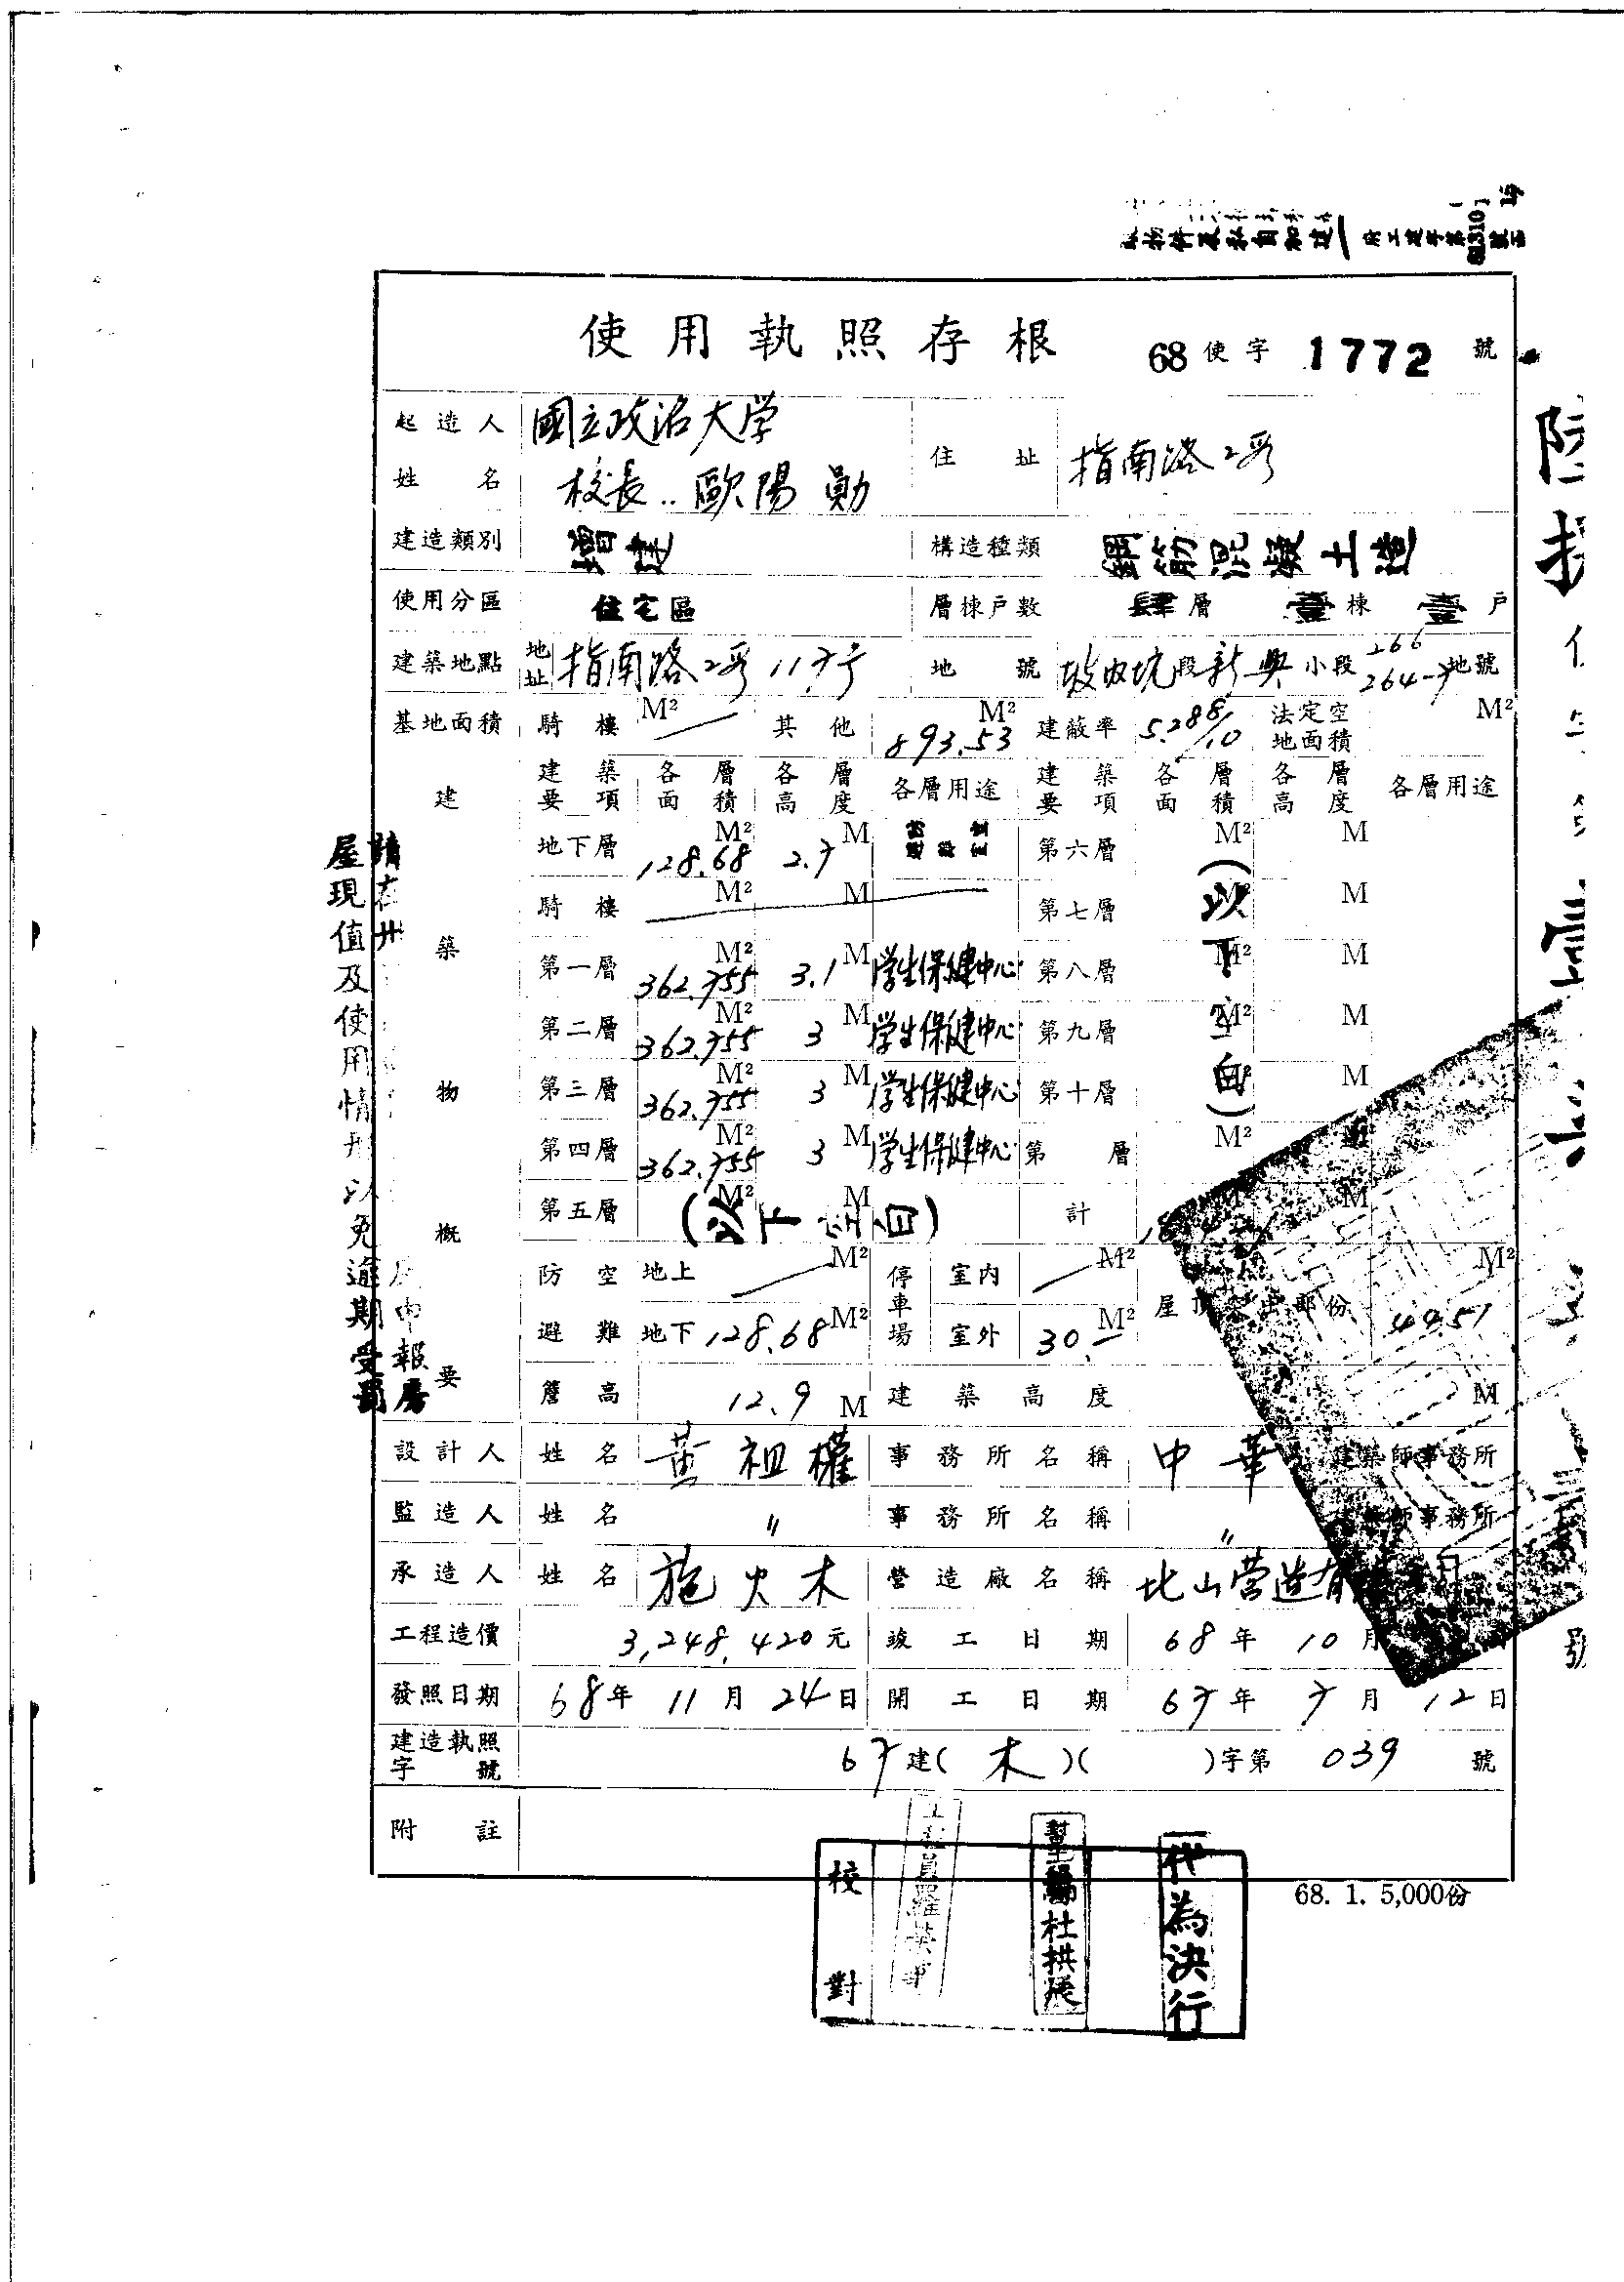 物件及私自加建
府工建字第81310號函
使用執照存根 68使字1772號
起造人姓名 國立政治大学 校長..歐陽勛 住址 指南路2段
建造類別 增建 構造種類 鋼筋混凝土造
使用分區 住宅區 層棟戶數 肆層 壹棟 壹戶
建築地點 地址 指南路2段117号 地號 坡內坑段新興小段 266 264-7地號
基地面積 騎樓 M² 其他 893.53 M² 建蔽率 5.288/10 法定空地面積 M²
建築物概要
建築要項 各層面積 各層高度 各層用途 建築要項 各層面積 各層高度 各層用途
地下層 128.68 M² 2.7 M 第六層 M² M
騎樓 M² M 第七層 M² M
第一層 362.755 M² 3.1 M 学生保健中心 第八層 M² M
第二層 362.755 M² 3 M 学生保健中心 第九層 M² M
第三層 362.755 M² 3 M 学生保健中心 第十層 M
第四層 362.755 M² 3 M 学生保健中心 第 層 M²
(以下空白)
第五層 M² M (以下空白) 計
防空避難 地上 M² 停車場 室內 M² 屋頂突出部份 M²
地下 128.68 M² 室外 30.- M² 44.51
簷高 12.9 M 建築高度 M
設計人 姓名 黃祖權 事務所名稱 中華建築師事務所
監造人 姓名 〃 事務所名稱 〃 建築師事務所
承造人 姓名 施火木 營造廠名稱 北山营造有
工程造價 3,248,420元 竣工日期 68年10月
發照日期 68年11月24日 開工日期 67年7月12日
建造執照字號 67建(木)( )字第039號
附註
68. 1. 5,000份
校對
杜拱辰
代為決行
屋現值及使用情形以免逾期受罰
申報房